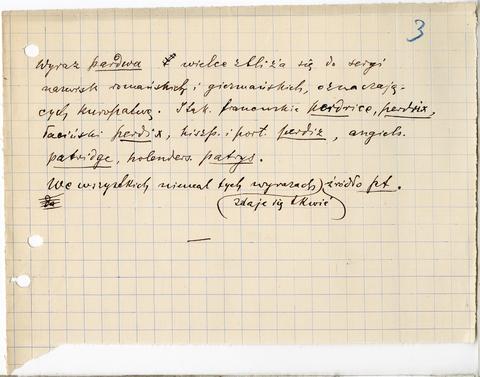 3
Wyraz pardwa wielce zbliża się do serji
nazwisk romańskich i giermańskich, oznaczają-
cych kuropatwę. I tak francuskie perdrice, perdrix,
łaciński perdix, hiszp. i port. perdiz, angiels.
patridge, holenders. patrys.
We wszystkich niemal tych wyrazach źródło pt.
zdaje się tkwić